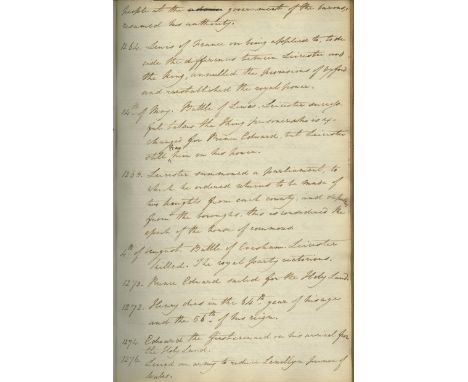 people at the government of the barons,
resumed his authority.
1264. Lewis of France on being applied to, to de
cide the differences between Leicester and
the King, annulled the provisions of Oxford
and reestablished the royal power.
14th of May. Battle of Lewes. Leicester success
ful takes the King prisoner who is ex-
changed for Prince Edward, but Leicester
still has him in his power.
Leicester summoned a parliament, to
which he ordered returns to be made of
two knights from each county, and
from the boroughs, this is considered the
epoch of the house of commons
4th of August. Battle of Evesham. Leicester
killed. The royal party victorious.
1270. Prince Edward sailed for the Holy Land.
1272. Henry dies in the 64th year of his age
and the 56th of his reign.
1274. Edward the first crowned on his arrival from
the Holy Land.
1276. an army to reduce Llewellyn prince of
Wales.